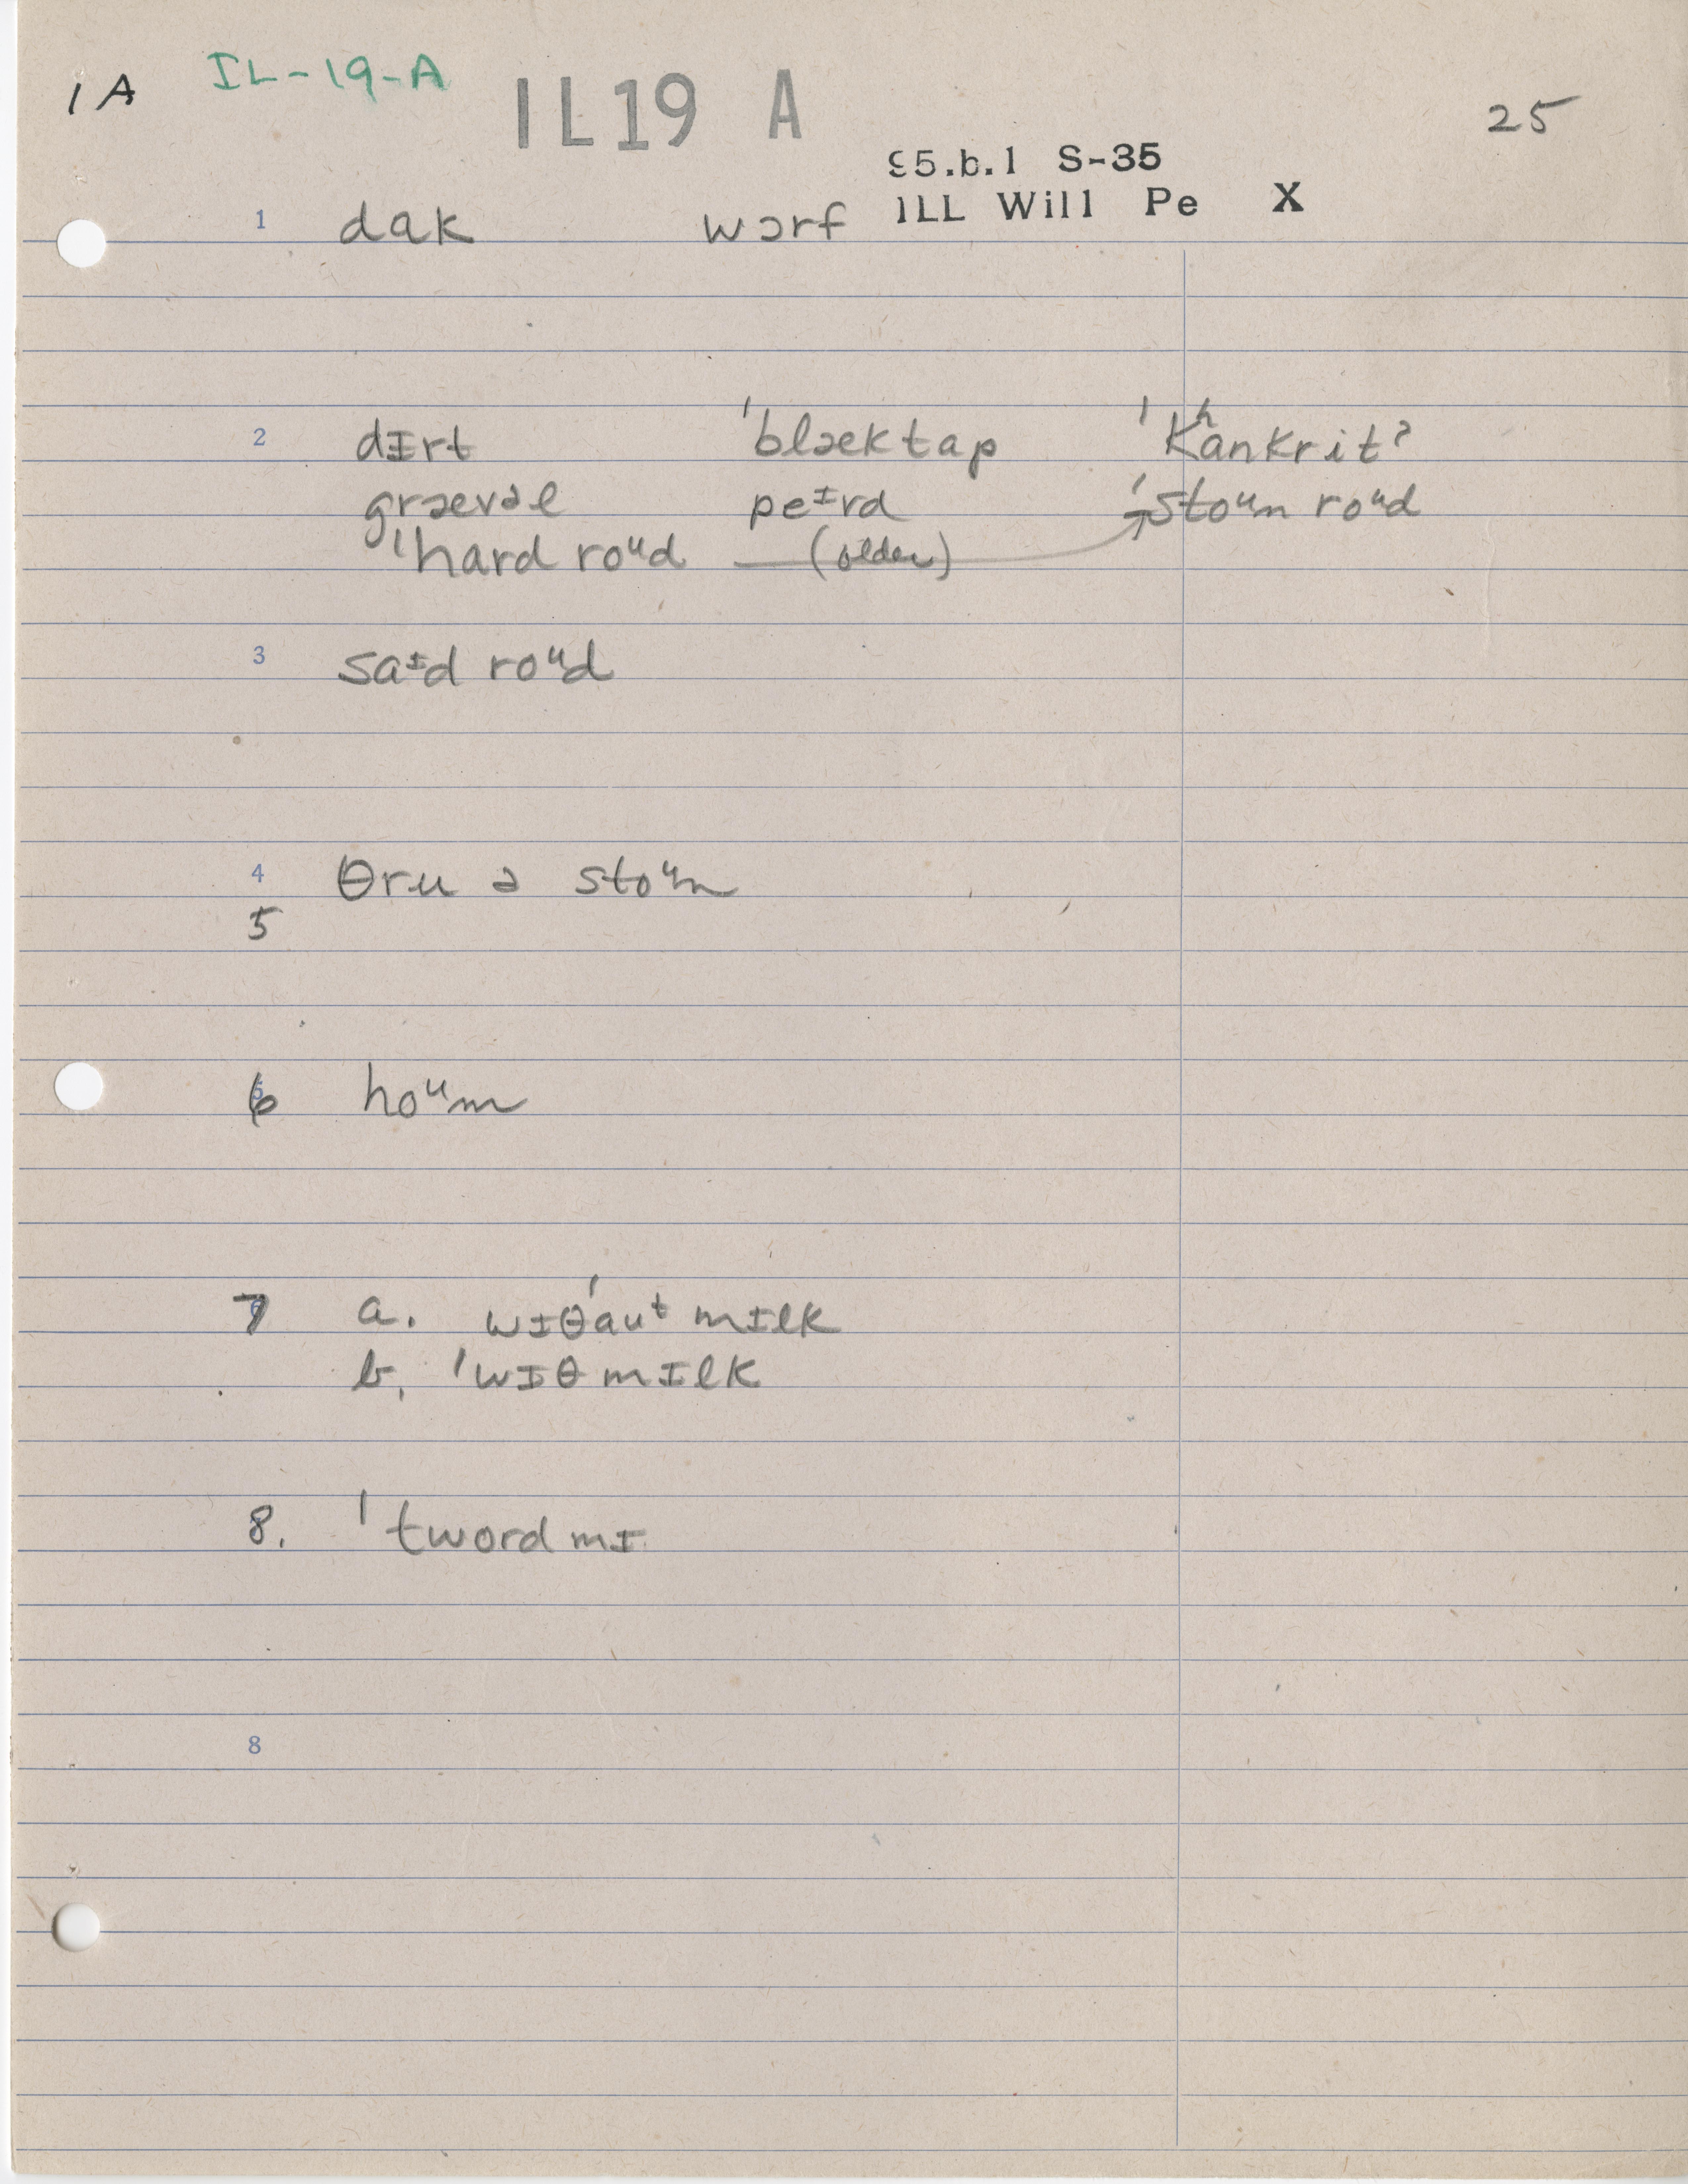 1 A IL-19-A IL19 A 25
95.b.1 S-35
ILL Will Pe X
1 dɑk wɔrf
2 dɪrt ˈblæktap ˈkʰankritˀ
grævəl peɪvd ˈstoᵘn roᵘd
ˈhard roᵘd (older)
3 saɪd roᵘd
4 θru ə stoᵘn
5
6 hoᵘm
7 a. wɪθˈauᵗ mɪlk
b. ˈwɪθ mɪlk
8. ˈtword mɪ
8